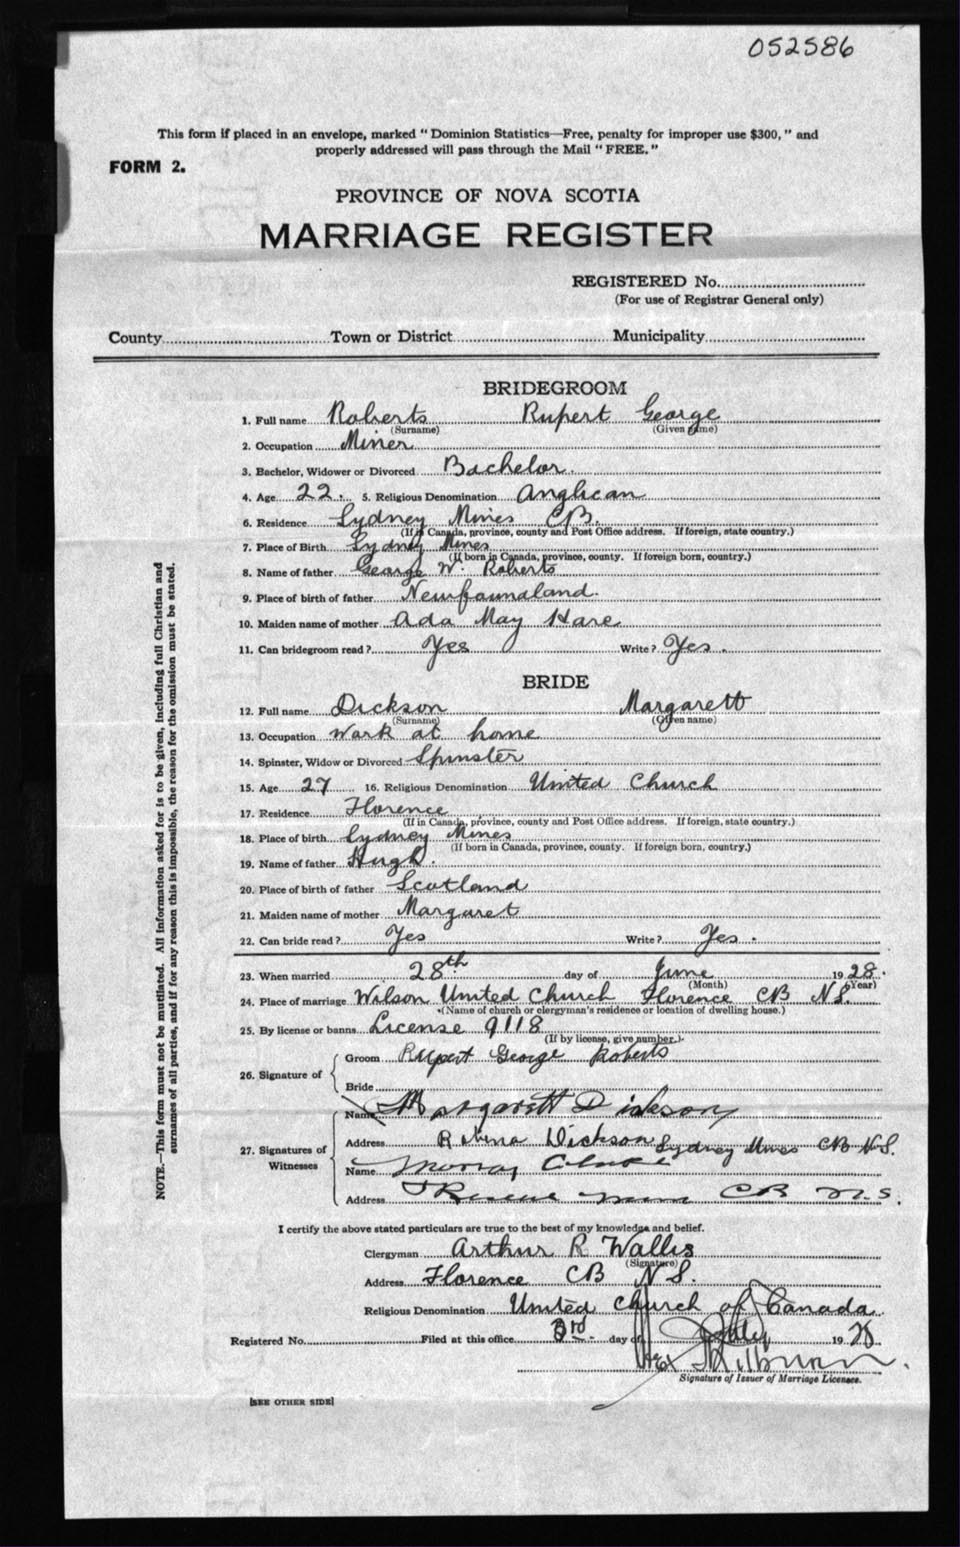 052586
This form if placed in an envelope, marked "Dominion Statistics—Free, penalty for improper use $300," and
properly addressed will pass through the Mail "FREE."
FORM 2.
PROVINCE OF NOVA SCOTIA
MARRIAGE REGISTER
REGISTERED No.
(For use of Registrar General only)
County Town or District Municipality
BRIDEGROOM
1. Full name Roberts Rupert George
(Surname) (Given name)
2. Occupation Miner
3. Bachelor, Widower or Divorced Bachelor.
4. Age 22. 5. Religious Denomination Anglican
6. Residence Sydney Mines CB.
(If in Canada, province, county and Post Office address. If foreign, state country.)
7. Place of Birth Sydney Mines
(If born in Canada, province, county. If foreign born, country.)
8. Name of father George W. Roberts
9. Place of birth of father Newfoundland.
10. Maiden name of mother Ada May Hare
11. Can bridegroom read? Yes Write? Yes.
BRIDE
12. Full name Dickson Margarett
(Surname) (Given name)
13. Occupation Work at home
14. Spinster, Widow or Divorced Spinster
15. Age 27 16. Religious Denomination United Church
17. Residence Florence
(If in Canada, province, county and Post Office address. If foreign, state country.)
18. Place of birth Sydney Mines
(If born in Canada, province, county. If foreign born, country.)
19. Name of father Hugh.
20. Place of birth of father Scotland
21. Maiden name of mother Margaret
22. Can bride read? Yes Write? Yes.
23. When married 28th day of June 1928.
(Month) (Year)
24. Place of marriage Wilson United Church Florence CB NS.
(Name of church or clergyman's residence or location of dwelling house.)
25. By license or banns License 9118
(If by license, give number.)
26. Signature of Groom Rupert George Roberts
Bride
Name Margarett Dickson
27. Signatures of Witnesses
Address Robina Dickson Sydney Mines CB N.S.
Name Murray
Address CB N.S.
I certify the above stated particulars are true to the best of my knowledge and belief.
Clergyman Arthur R Wallis
(Signature)
Address Florence CB NS.
Religious Denomination United Church of Canada
Registered No. Filed at this office 3rd day of July 1928
Signature of Issuer of Marriage Licenses.
[SEE OTHER SIDE]
NOTE.—This form must not be mutilated. All information asked for is to be given, including full Christian and
surnames of all parties, and if for any reason this is impossible, the reason for the omission must be stated.